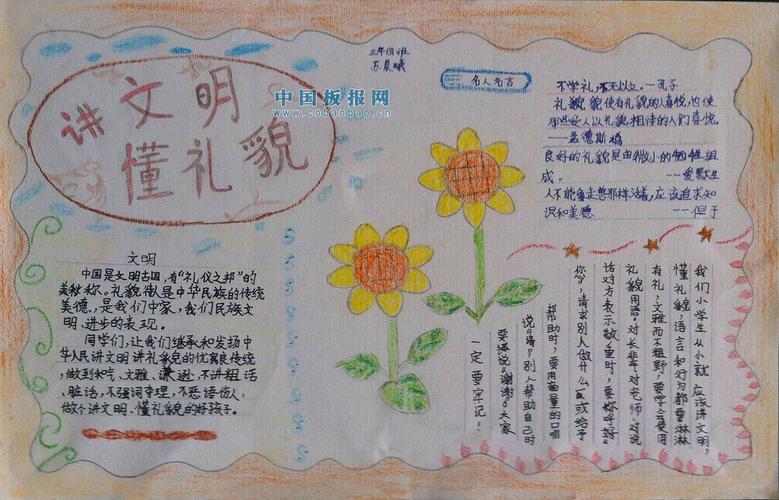 讲文明
懂礼貌
中国板报网
www.cnbanbao.cn
三年四班
苏晨曦
名人名言
不学礼,不无以立。——孔子
礼貌使有礼貌的人喜悦,也使
那些受人以礼貌相待的人们喜悦。
——孟德斯鸠
良好的礼貌是由微小的牺牲组
成。——爱默生
人不能象走兽那样活着,应该追求知
识和美德——但丁
文明
中国是文明古国,有“礼仪之邦”的
美称。礼貌待人是中华民族的传统
美德,是我们中家,我们民族文
明、进步的表现。
同学们,让我们继承和发扬中
华人民讲文明讲礼貌的优良传统,
做到和气、文雅、谦逊,不讲粗话、
脏话,不强词夺理,不恶语伤人,
做个讲文明、懂礼貌的好孩子。
我们小学生从小就应该讲文明,
懂礼貌,语言和行为都要彬彬
有礼,文雅而不粗野,要学会使用
礼貌用语。对长辈、对老师、对说
话对方表示敬重时,要称呼
您,请求别人做什么或给予
帮助时,要用商量的口唱
说“请”别人帮助自己时
要说“谢谢”大家
一定要牢记!